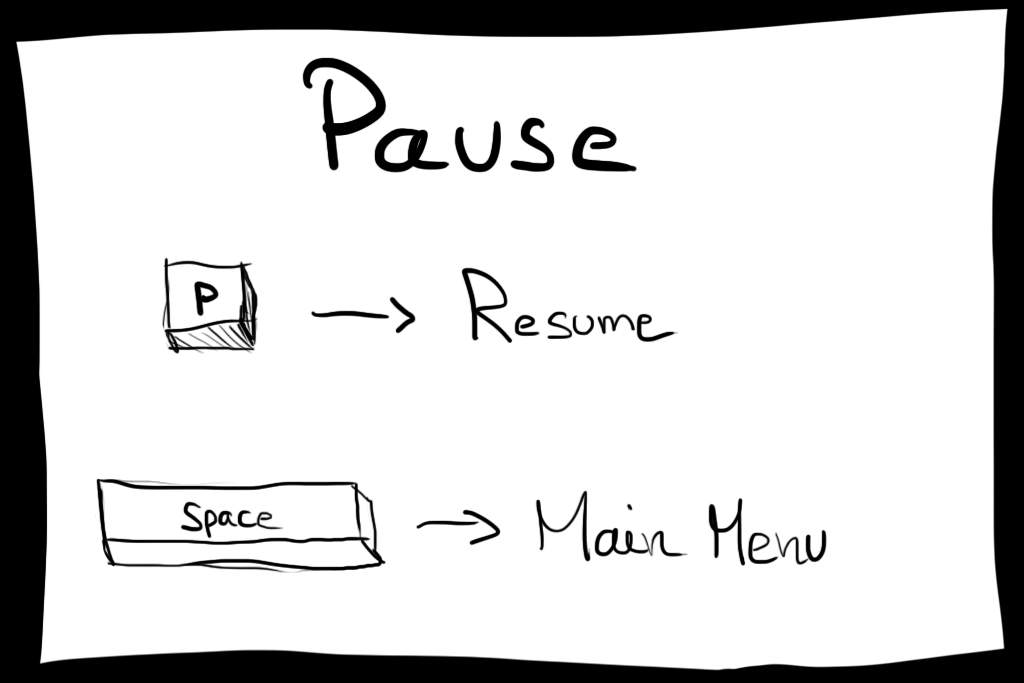 Pause
P → Resume
Space → Main Menu